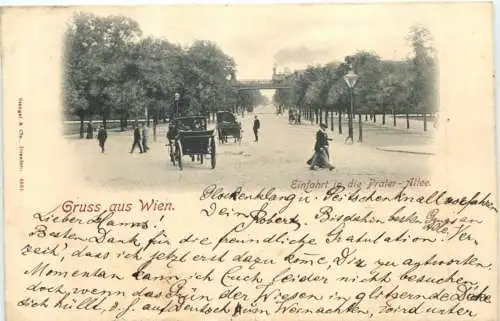 Stengel & Co., Dresden.
Einfahrt in die Prater-Allee.
Gruss aus Wien.
Glockenklang u. Peitschenknall
Lieber Hanns! Dein Robert. Bis dahin besten Gruss an
Besten Dank für die freundliche Gratulation. Ver-
zeih', dass ich jetzt erst dazu kome, Dir zu antworten.
Momentan kann ich Euch leider nicht besuche,
doch, wenn das Grün der Wiesen in glitzernde Decke
sich hüllt, d. h. auf Deutsch zum Weihnachten, wird unter